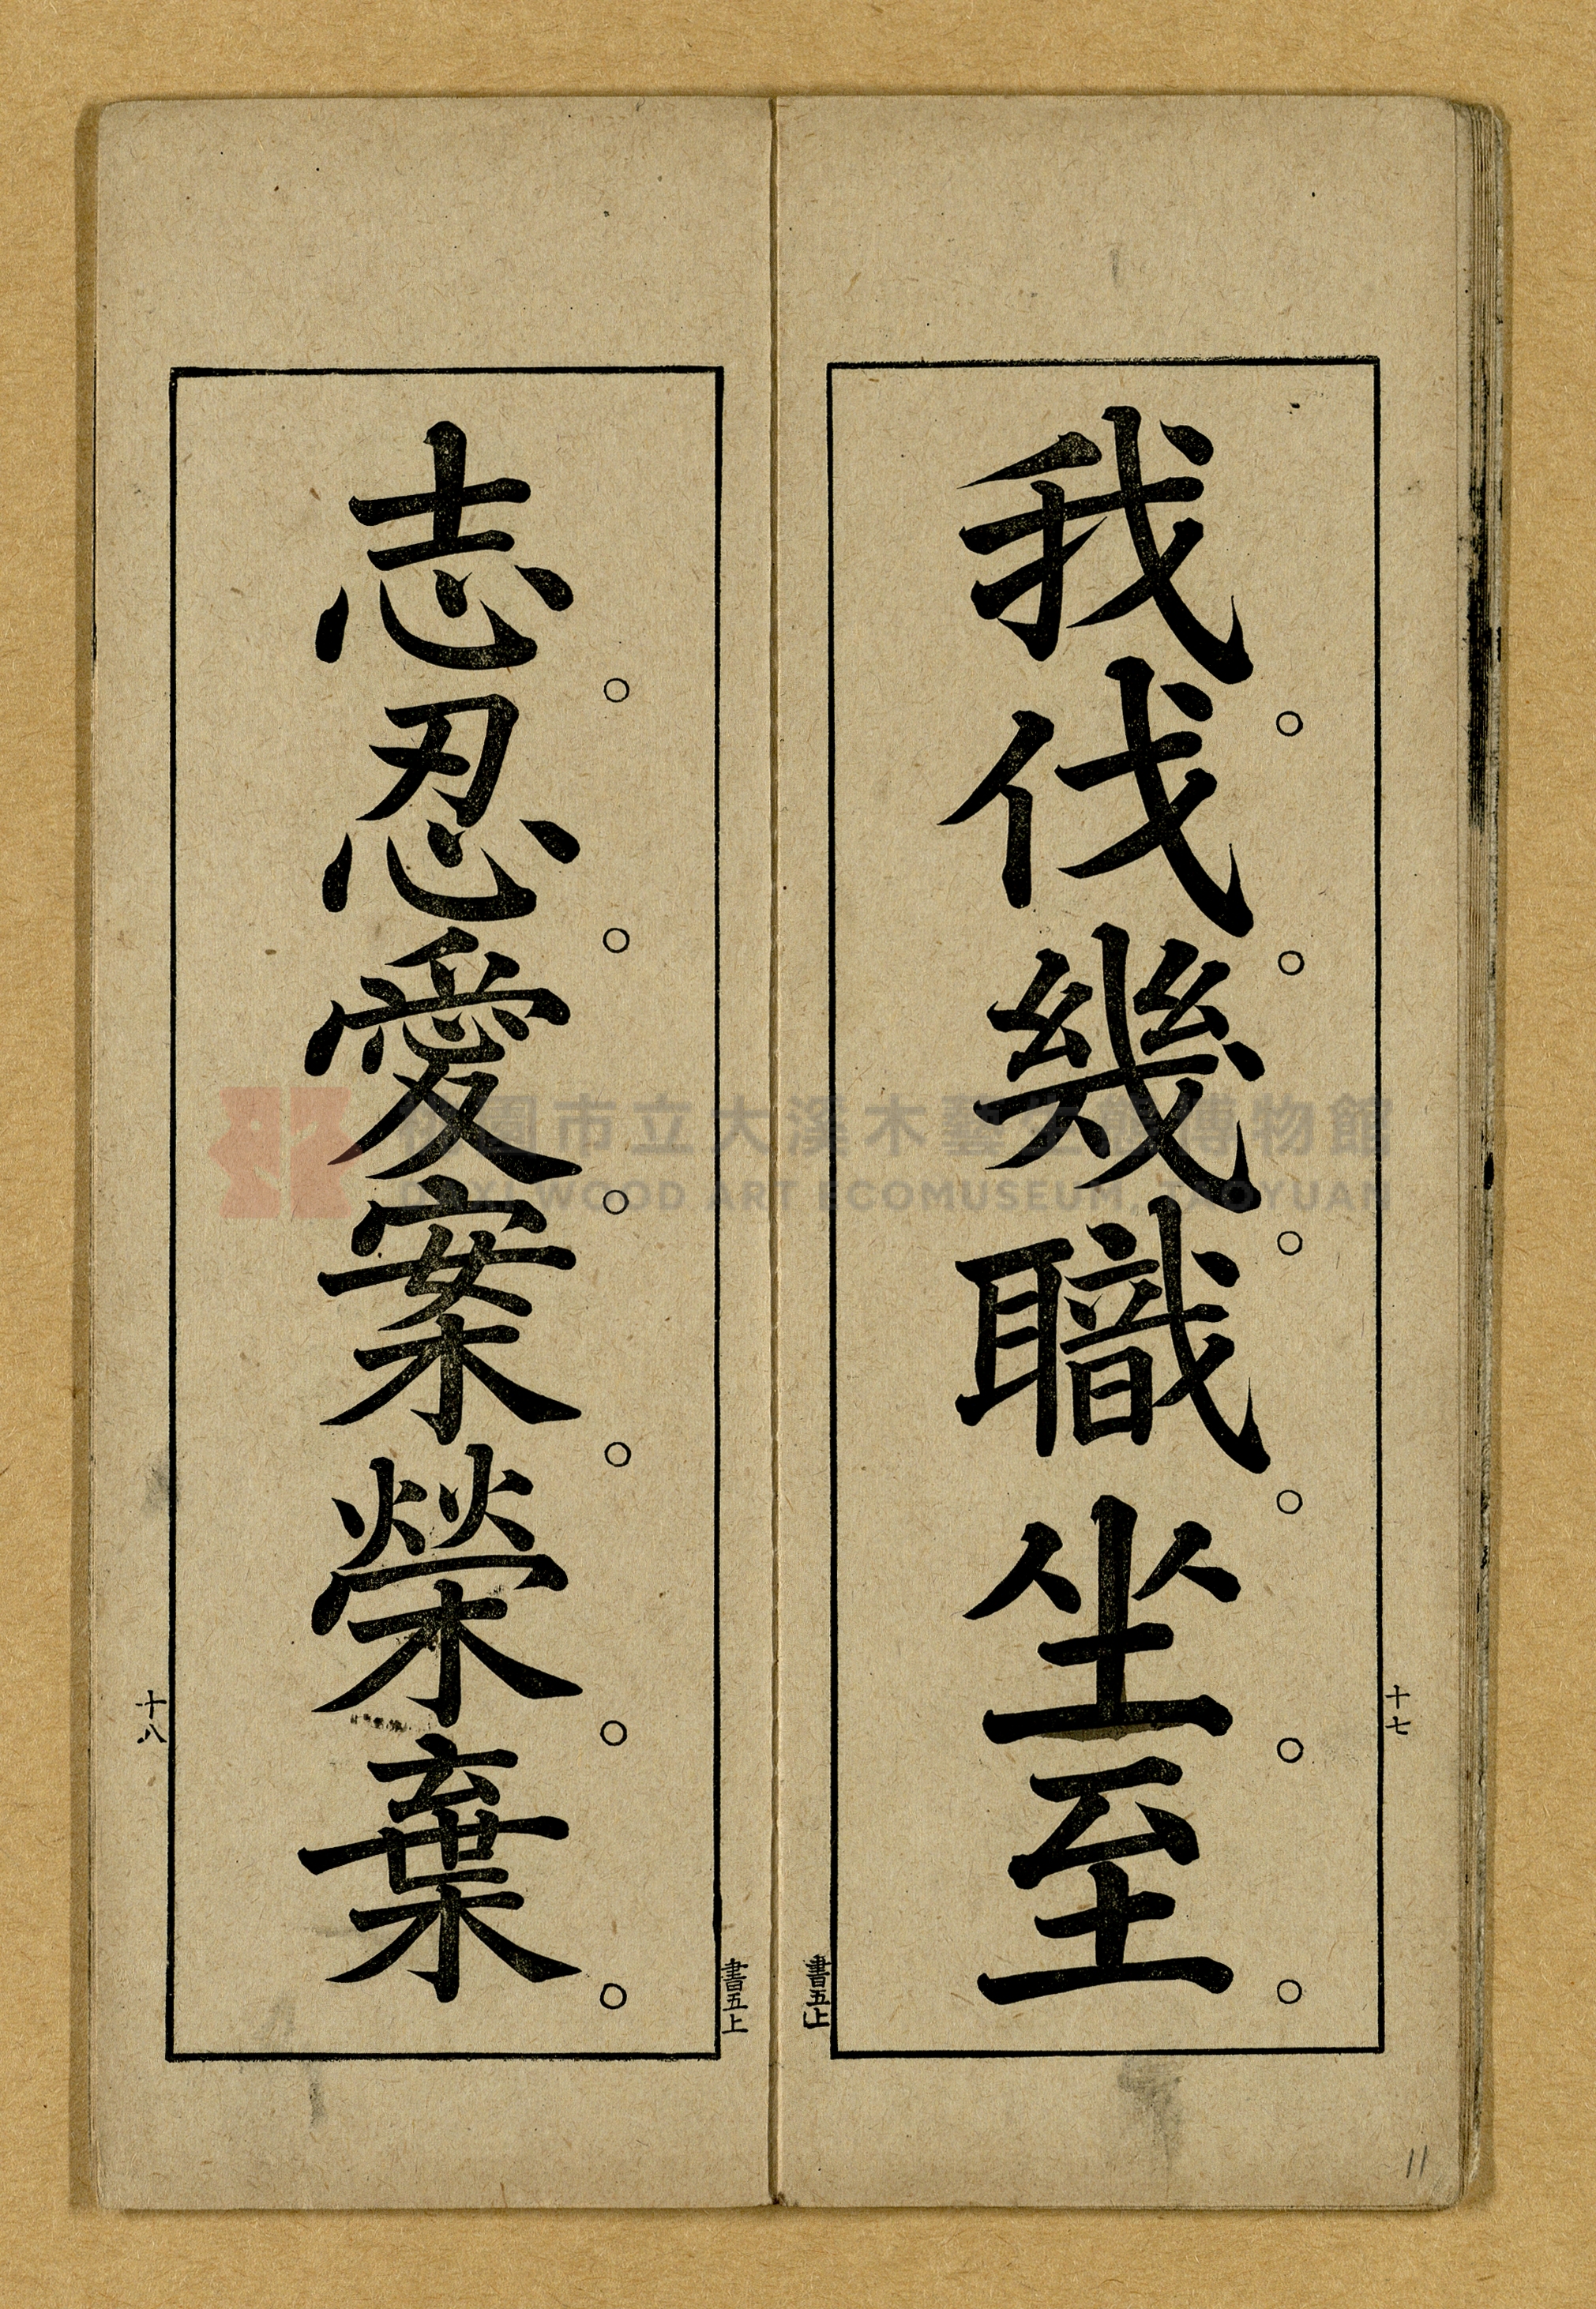 我。伐。幾。職。坐。至。
十七
書五上
志。忍。愛。案。榮。棄。
十八
書五上
桃園市立大溪木藝生態博物館
DAXI WOOD ART ECOMUSEUM, TAOYUAN
11